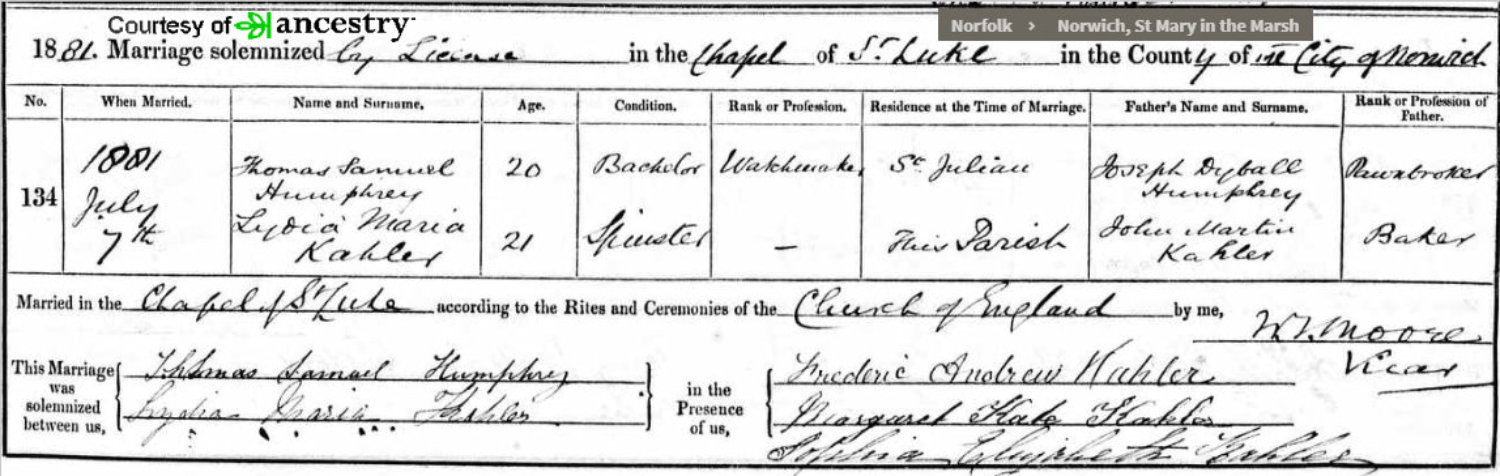 Courtesy of ancestry
Norfolk > Norwich, St Mary in the Marsh
1881. Marriage solemnized by License in the Chapel of St. Luke in the County of the City of Norwich
No. When Married. Name and Surname. Age. Condition. Rank or Profession. Residence at the Time of Marriage. Father's Name and Surname. Rank or Profession of Father.
134 1881 July 7th
Thomas Samuel Humphrey 20 Bachelor Watchmaker St. Julian Joseph Dyball Humphrey Pawnbroker
Lydia Maria Kahler 21 Spinster – This Parish John Martin Kahler Baker
Married in the Chapel of St Luke according to the Rites and Ceremonies of the Church of England by me,
Moore
Vicar
This Marriage was solemnized between us,
Thomas Samuel Humphrey
Lydia Maria Kahler
in the Presence of us,
Frederic Andrew Kahler
Margaret Kate Kahler
Sophia Elizabeth Kahler